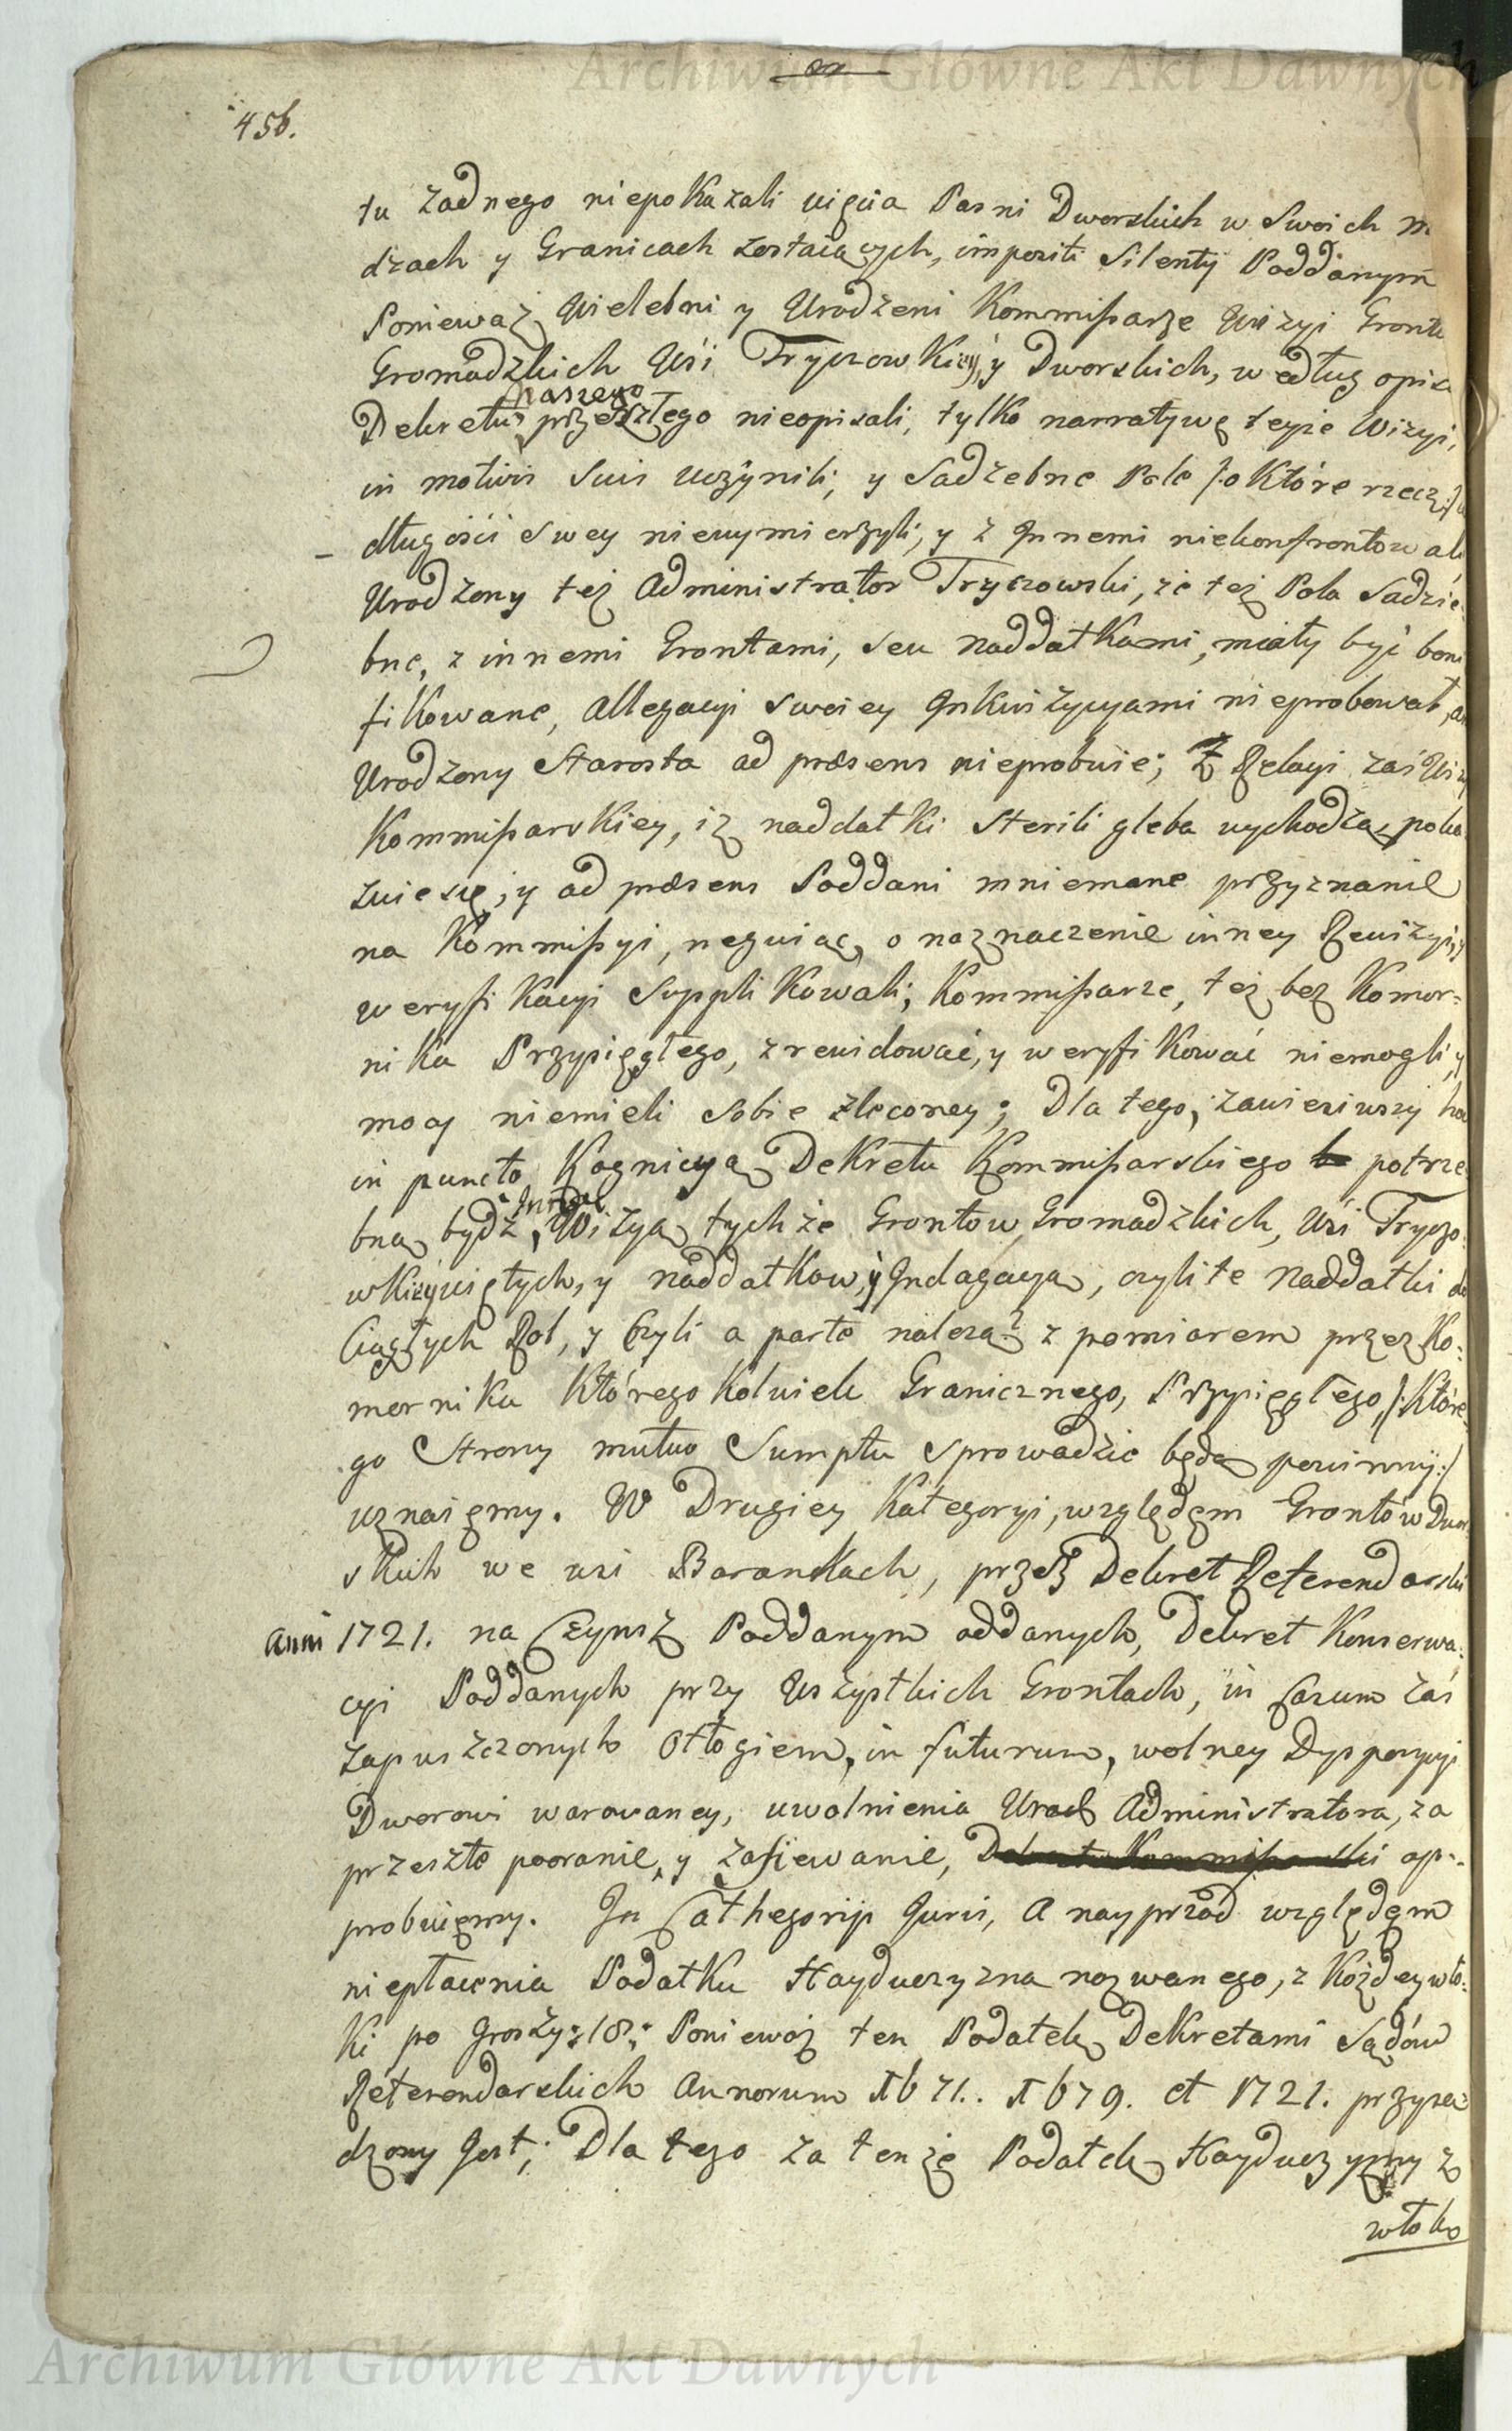 Archiwum Główne Akt Dawnych
456.
tu żadnego niepokazali uięcia Pasni Dworskich w Swoich
dzach y Granicach zostaiących, imposito Silentij Poddanym
Ponieważ Wielebni y Urodzeni Kommißarze Wizyi Grontu
Gromadzkich Wsi Tryczowkizỳ, y Dworskich, według opisu
naszego
Dekretu przeszłego nieopisali, tylko narratywę teyże Wizyi,
in motivis Suis uczynili, y Sadzebne Pole /: o Które rzecz
długości Swey niewymierzyli, y z Innemi niekonfrontowali
Urodzony też Administrator Tryczowski, że też Pola Sadzie
bne, z innemi Grontami, seu naddatkami, miały być boni
fikowane, Allegacyi Swoiey Inkwizycyami nieprobował, a
Urodzony Starosta ad præsens nieprobuie; Z Relacyi zaś
Kommißarskiey, iż naddatki Sterili gleba wychodzą, poka
zuie się; y ad præsens Poddani mniemane przyznanie
na Kommißyi, neguiąc, o naznaczenie inney Rewizyi, y
weryfikacyi Supplikowali; Kommißarze, też bez Komor:
nika Przysięgłego, zrewidować, y weryfikować niemogli, y
mocy niemieli Sobie zleconey; Dla tego, zawiesiwszy
in puncto Kognicyą Dekretu Kommißarskiego potrze
bną bydź, Wizyą tychże Grontow Gromadzkich, Wsi Tryczo
wkizỳ uiętych, y naddatkow, y Indagacyą, czyli te Naddatki do
Ciągłych Rol, y czyli a parte należą? z pomiarem przez Ko:
mornika Któregokolwiek Granicznego, Przysięgłego, /: Które
go Strony mutuo Sumptu Sprowadzic będą powinny :/
uznaiemy. W Drugiey Kategoryi, względem Grontów Dwor
skich we wsi Barankach, przez Dekret Referendarski
anni 1721. na Czynsz Poddanym oddanych, Dekret Konserwa:
cyi Poddanych przy Wszystkich Grontach, in Casum zaś
zapuszczonych Odłogiem, in futurum, wolney Dyspozycyi
Dworowi warowaney, uwolnienia Urod Administratora, za
przeszłe pooranie, y zasiewanie, Dekret Kommißarski ap:
probuiemy. In Cathegorij Juris, A nayprzód względem
niepłacenia Podatku Hayduczyzna nazwanego, z Każdey wło:
ki po Groszy: 18: Poniewoż ten Podatek Dekretami Sądów
Referendarskich Annorum 1671.. 1679. et 1721. przysą
dzony Jest; Dla tego za tenże Podatek Hayduczyzny z
włoko
Archiwum Główne Akt Dawnych